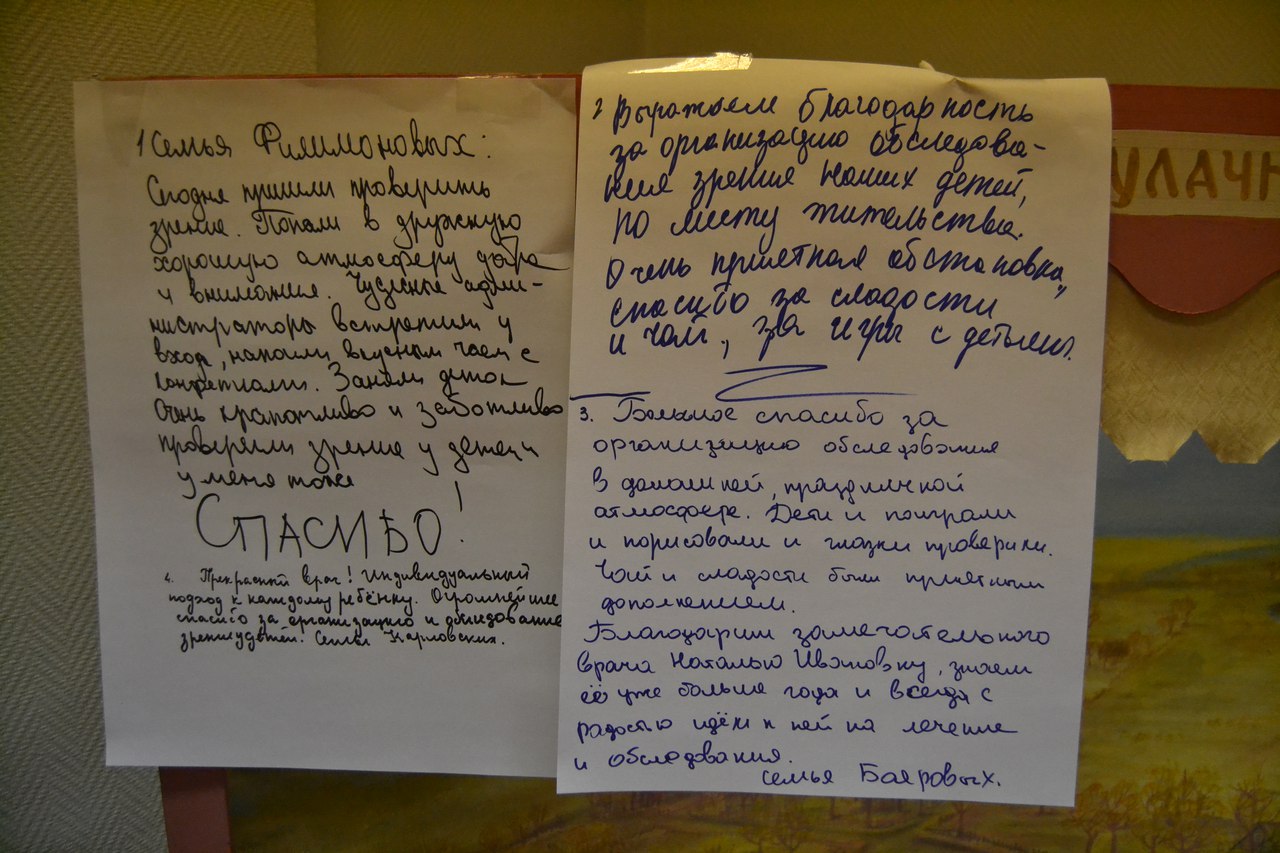 1 Семья Филимоновых:
Сегодня пришли проверить
зрение. Попали в дружную
хорошую атмосферу добра
и внимания. Чудесные адми-
нистраторы встретили у
входа, напоили вкусным чаем с
конфетками. Заняли деток
Очень кропотливо и заботливо
проверили зрение у детей и
у меня тоже
СПАСИБО!
4. Прекрасный врач! Индивидуальный
подход к каждому ребёнку. Огромнейшее
спасибо за организацию и обследование
зрения у детей! Семья Карловских.
2 Выражаем благодарность
за организацию обследова-
ния зрения наших детей,
по месту жительства.
Очень приятная обстановка,
спасибо за сладости
и чай, за игры с детьми.
3. Большое спасибо за
организацию обследования
в домашней, праздничной
атмосфере. Дети и поиграли
и порисовали и глазки проверили.
Чай и сладости были приятным
дополнением.
Благодарим замечательного
врача Наталью Ивановну, знаем
её уже больше года и всегда с
радостью идём к ней на лечение
и обследования.
семья Бояровых.
УЛАЧН